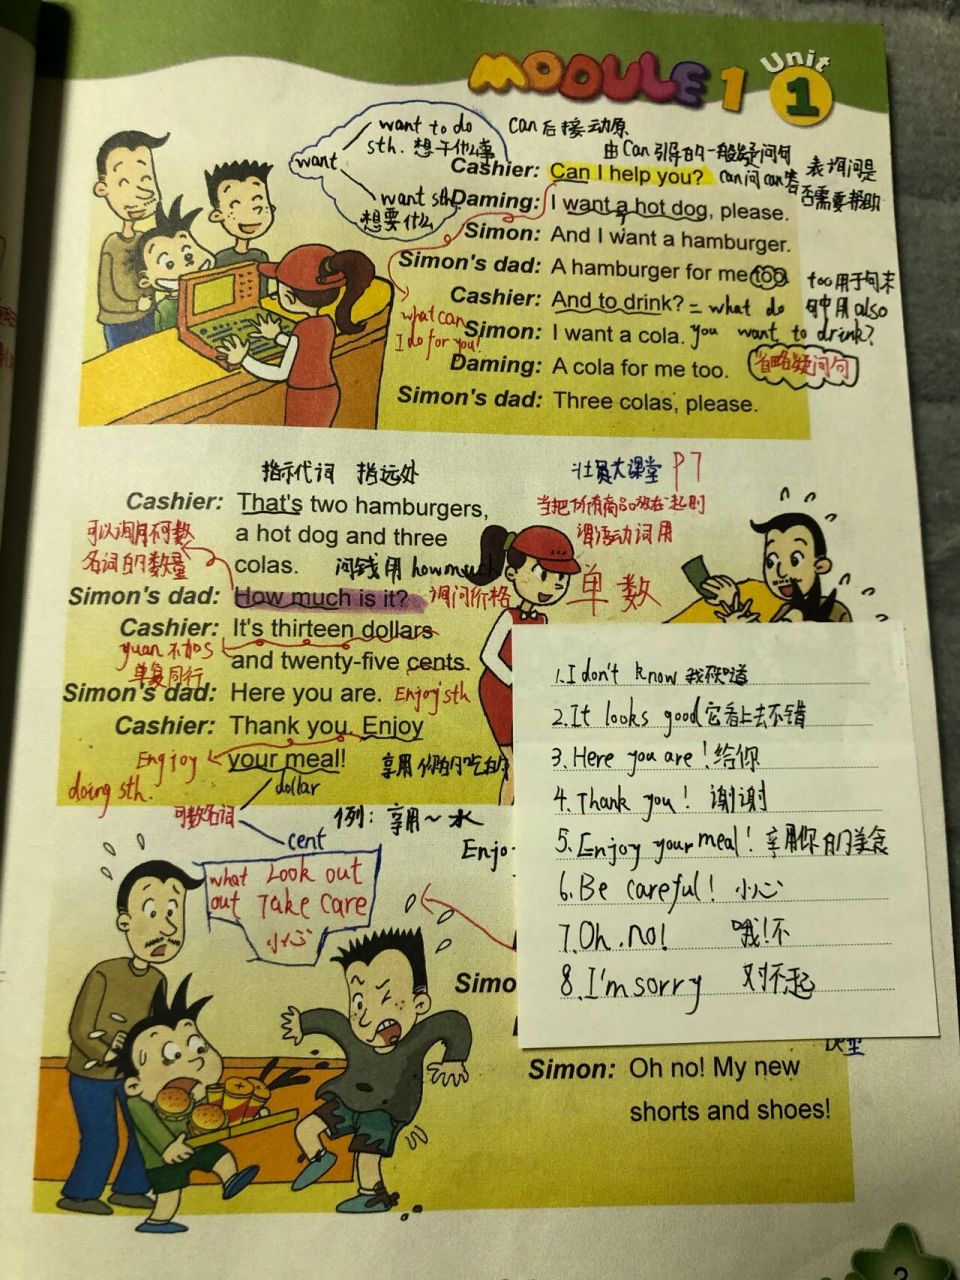 MODULE 1 Unit 1
can后接动原
由Can引导的一般疑问句
表询问是
否需要帮助
want
want to do
sth. 想干什么事
want sth
想要什么
Cashier: Can I help you? can问can答
Daming: I want a hot dog, please.
Simon: And I want a hamburger.
Simon's dad: A hamburger for me too.
too用于句末
句中用also
Cashier: And to drink? = what do
you want to drink?
what can
I do for you!
Simon: I want a cola.
Daming: A cola for me too.
省略疑问句
Simon's dad: Three colas, please.
指示代词 指远处
壮员大课堂 P7
Cashier: That's two hamburgers,
a hot dog and three
colas.
当把所有商品放在一起则
谓语动词用
单数
可以询问不可数
名词的数量
问钱用how much
Simon's dad: How much is it?
询问价格
Cashier: It's thirteen dollars
and twenty-five cents.
yuan不加s
单复同行
Simon's dad: Here you are.
Enjoy sth
Cashier: Thank you. Enjoy
your meal!
Engjoy
doing sth.
享用你的吃的
可数名词
dollar
cent
例：享用~水
Enjo
what Look out
out Take care
小心
Simo
1.I don't know 我不知道
2.It looks good它看上去不错
3.Here you are!给你
4.Thank you! 谢谢
5.Enjoy your meal! 享用你的美食
6.Be careful! 小心
7.Oh.no! 哦!不
8.I'm sorry 对不起
Simon: Oh no! My new
shorts and shoes!